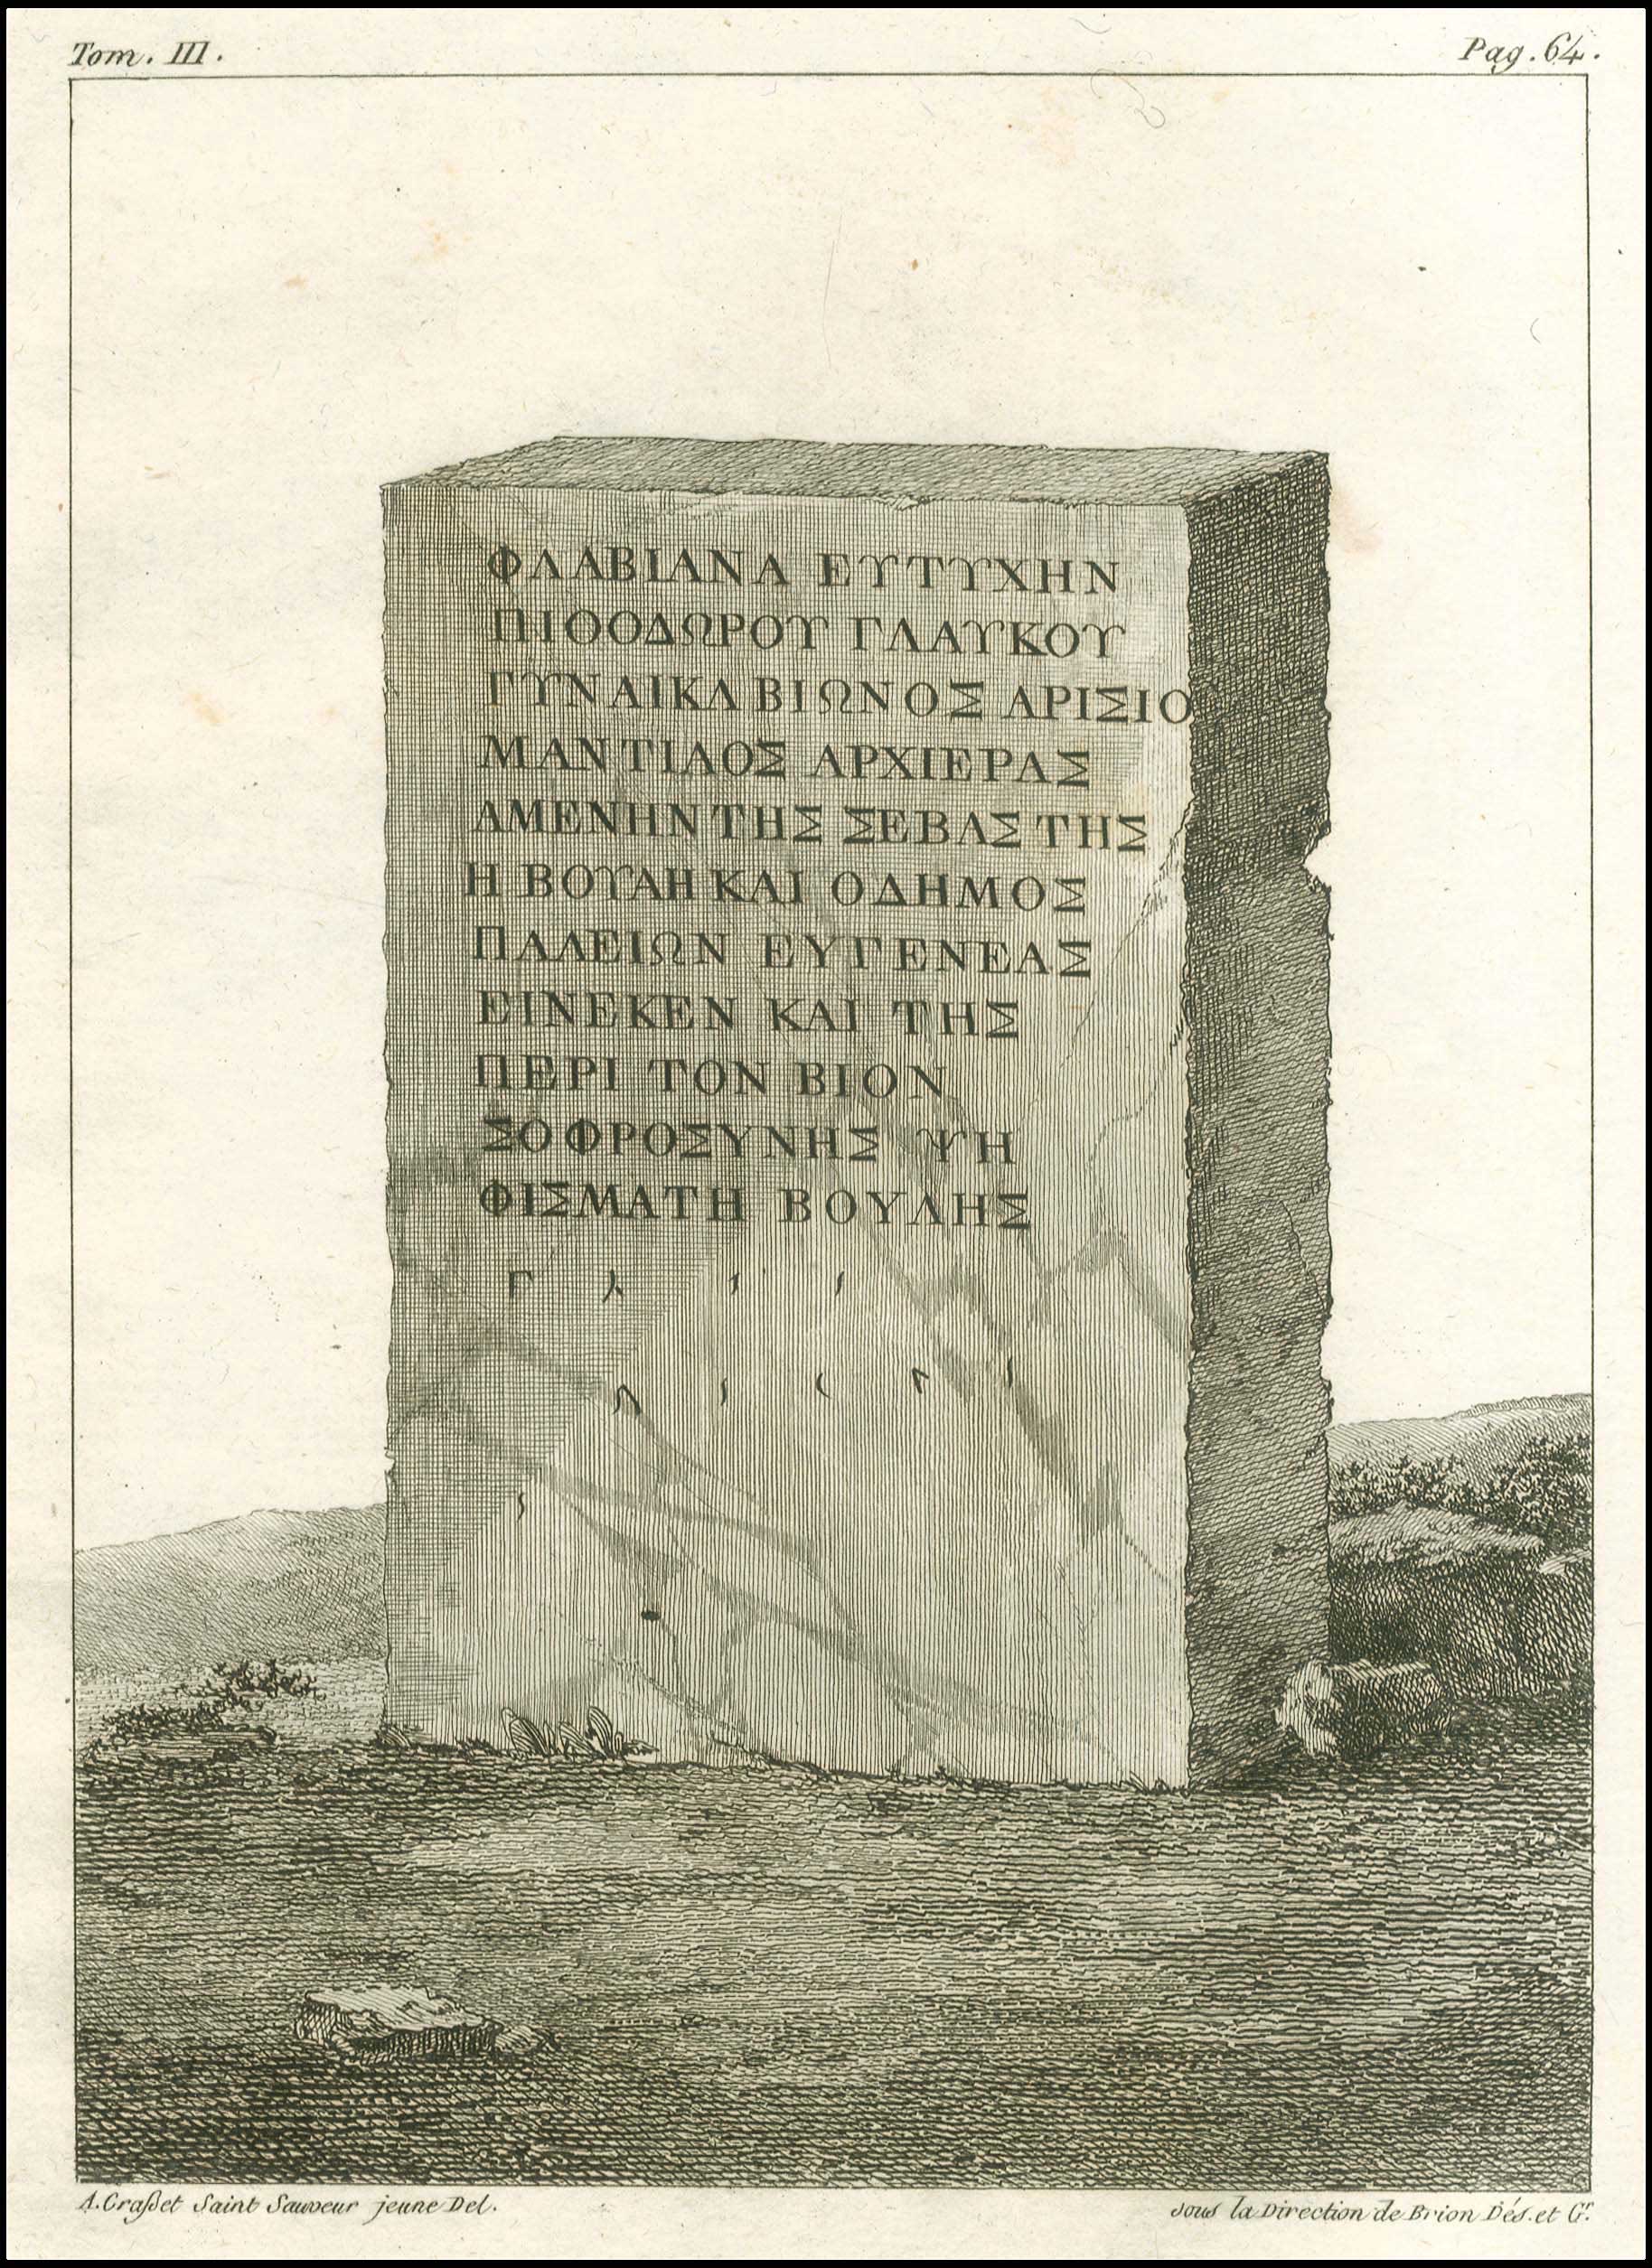 Tom. III.
Pag. 64.
ΦΛΑΒΙΑΝΑ ΕΥΤΥΧΗΝ
ΠΙΟΟΔΩΡΟΥ ΓΛΑΥΚΟΥ
ΓΥΝΑΙΚΑ ΒΙΩΝΟΣ ΑΡΙΣΙΟ
ΜΑΝΤΙΛΟΣ ΑΡΧΙΕΡΑΣ
ΑΜΕΝΗΝ ΤΗΣ ΣΕΒΑΣΤΗΣ
Η ΒΟΥΛΗ ΚΑΙ ΟΔΗΜΟΣ
ΠΑΛΕΙΩΝ ΕΥΓΕΝΕΑΣ
ΕΙΝΕΚΕΝ ΚΑΙ ΤΗΣ
ΠΕΡΙ ΤΟΝ ΒΙΟΝ
ΣΟΦΡΟΣΥΝΗΣ ΨΗ
ΦΙΣΜΑΤΗ ΒΟΥΛΗΣ
A. Craſset Saint Sauveur jeune Del.
sous la Direction de Brion Dés. et Gr.